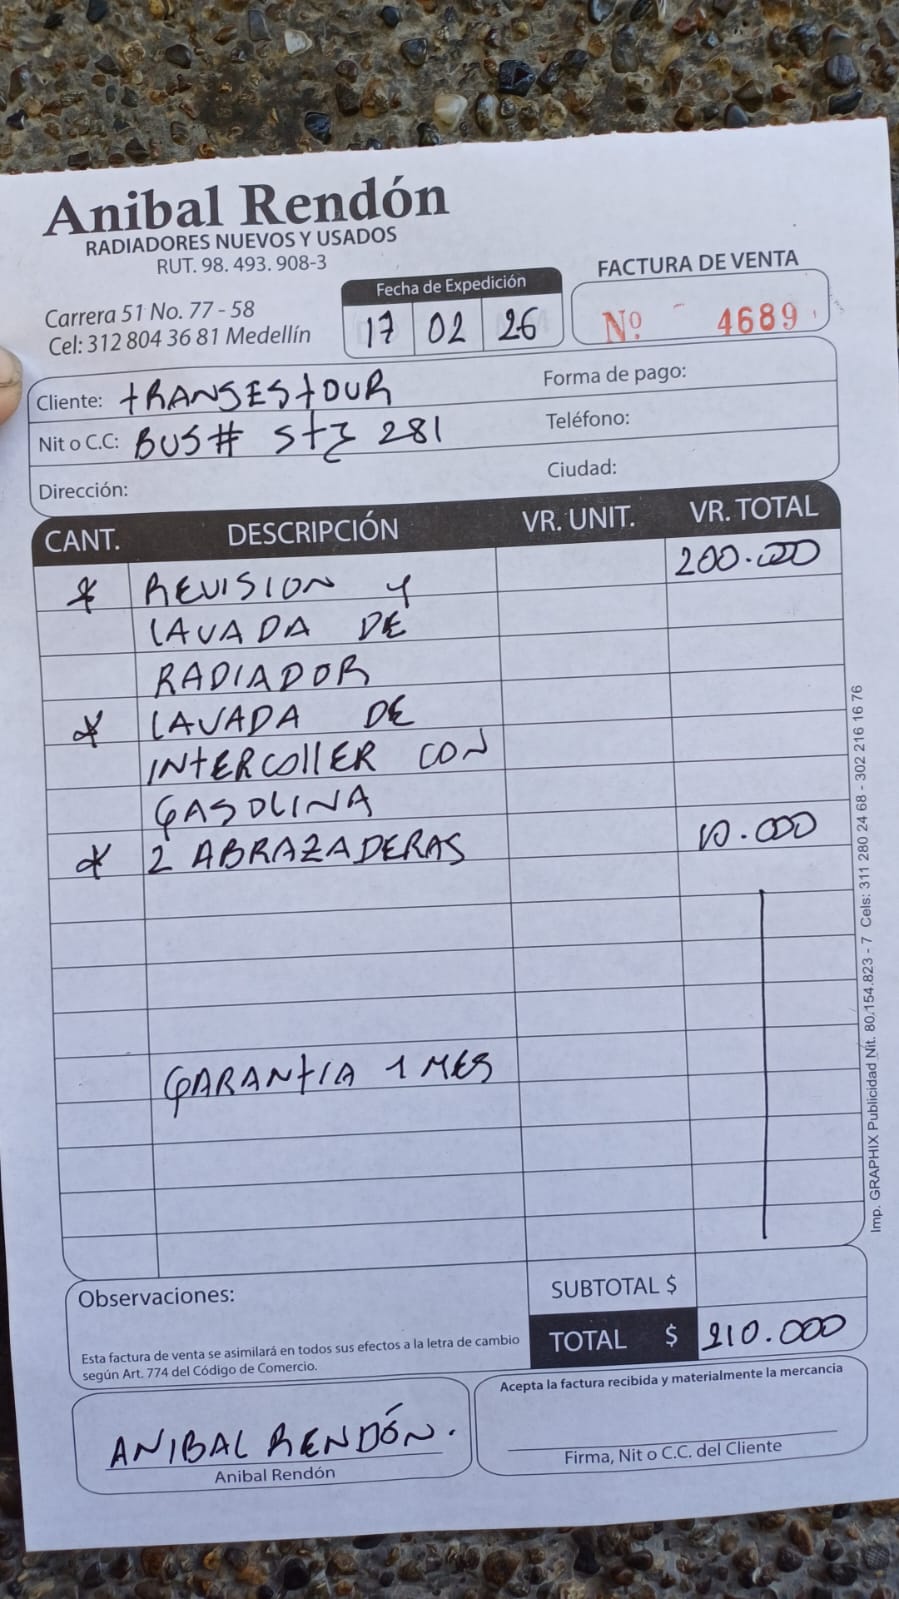 Anibal Rendón
RADIADORES NUEVOS Y USADOS
RUT. 98. 493. 908-3
Carrera 51 No. 77 - 58
Cel: 312 804 36 81 Medellín
Fecha de Expedición
17 02 26
FACTURA DE VENTA
Nº 4689
Cliente: TRANSESTOUR
Forma de pago:
Nit o C.C: BUS# STZ 281
Teléfono:
Dirección:
Ciudad:
CANT. DESCRIPCIÓN VR. UNIT. VR. TOTAL
* REVISION Y 200.000
LAVADA DE
RADIADOR
* LAVADA DE
INTERCOLLER CON
GASOLINA
* 2 ABRAZADERAS 10.000
GARANTIA 1 MES
Observaciones:
SUBTOTAL $
Esta factura de venta se asimilará en todos sus efectos a la letra de cambio
según Art. 774 del Código de Comercio.
TOTAL $ 210.000
Acepta la factura recibida y materialmente la mercancia
ANIBAL RENDÓN.
Anibal Rendón
Firma, Nit o C.C. del Cliente
Imp. GRAPHIX Publicidad Nit. 80.154.823 - 7 Cels: 311 280 24 68 - 302 216 16 76